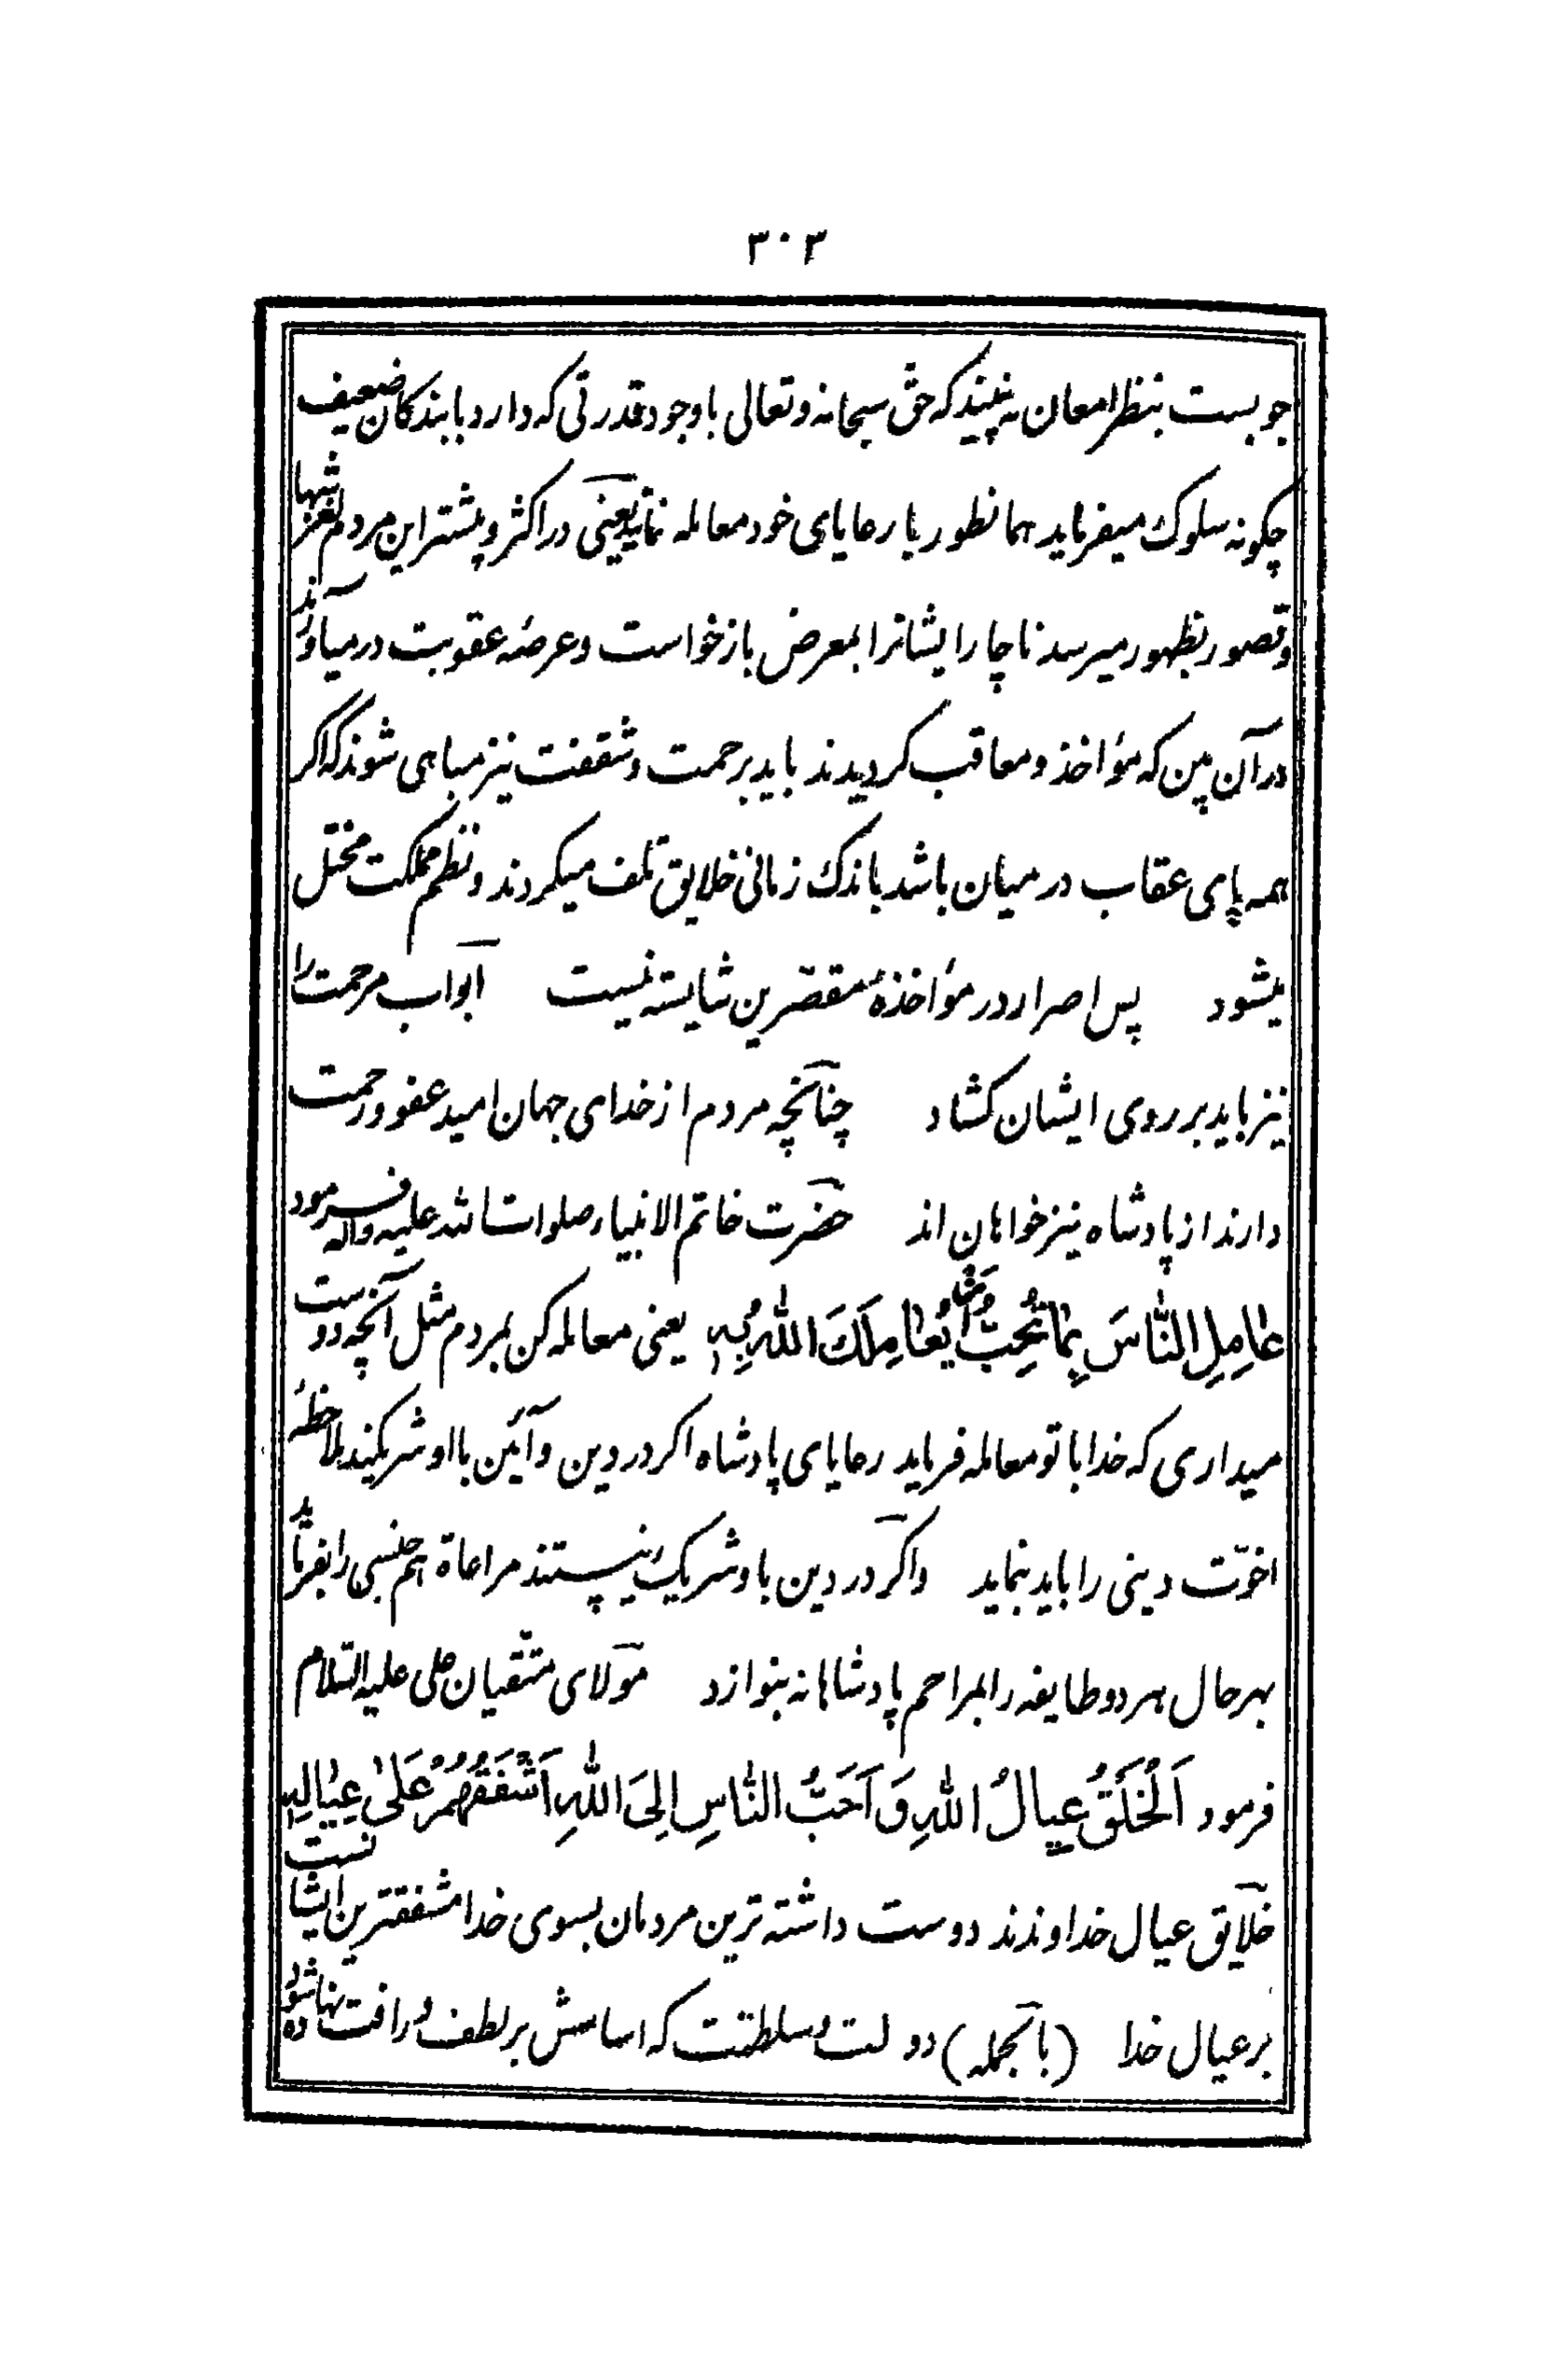 ۳۰۳
جو بست بنظر امعان به بیند که حق سبحانه و تعالی با وجود قدرتی که دارد با بندکان ضعیف
چکونه سلوک میفرماید همانطور با رعایای خود معامله نماید یعنی در اکثر و بیشتر این مردم لغزشها
و قصور بظهور میرسد ناچار ایشانرا بمعرض بازخواست و عرضهٔ عقوبت در میآورند
در آن من که مؤاخذ و معاقب کردیدند باید برحمت و شفقت نیز مباهی شوند که اکر
همه پای عقاب در میان باشد باندک زمانی خلایق تلف میکردند و نظم مملکت مختل
میشود پس اصرار در مؤاخذهٔ مقصّرین شایسته نیست ابواب مرحمت را
نیز باید بر روی ایشان کشاد چنانچه مردم از خدای جهان امید عفو و رحمت
دارند از پادشاه نیز خواهان اند حضرت خاتم الانبیاء صلوات الله علیه و آله فرمود
عٰامِلِ النّٰاسَ بِمٰا تُحِبُّ اَنْ یُعٰامِلَکَ اللهُ بِهِ یعنی معامله کن بمردم مثل آنچه دوست
میداری که خدا با تو معامله فرماید رعایای پادشاه اکر در دین و آئین با او شریکند ملاحظهٔ
اخوّت دینی را باید بنماید و اکر در دین با و شریک نیستند مراعاة هم جنسی را بفرماید
بهرحال هر دو طایفه را بمراحم پادشاهانه بنوازد مولای متّقیان علی علیه السّلام
فرمود اَلْخَلْقُ عِیالُ اللهِ وَ اَحَبُّ النّٰاسِ اِلَی اللهِ اَشْفَقُهُمْ عَلیٰ عِیٰالِهِ
خلایق عیال خداوندند دوست داشته ترین مردمان بسوی خدا مشفقترین ایشانست
بر عیال خدا (بالجمله) دولت و سلطنت که اساسش بر لطف و رافت نهاده شود